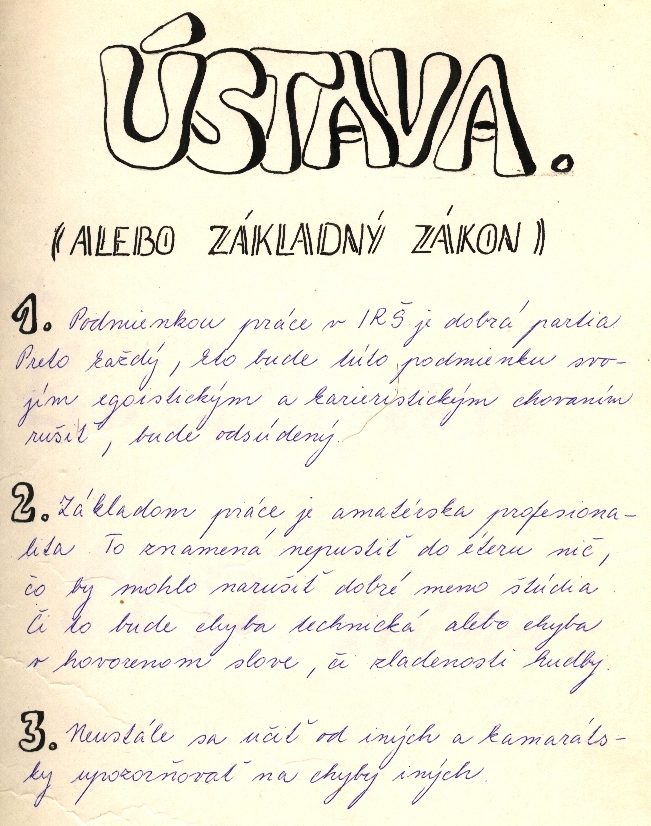 ÚSTAVA.
(ALEBO ZÁKLADNÝ ZÁKON)
1. Podmienkou práce v IRŠ je dobrá partia
Preto každý, kto bude túto podmienku svo-
jím egoistickým a karieristickým chovaním
rušiť, bude odsúdený.
2. Základom práce je amatérska profesiona-
lita. To znamená nepustiť do éteru nič,
čo by mohlo narušiť dobré meno štúdia.
Či to bude chyba technická alebo chyba
v hovorenom slove, či zladenosti hudby.
3. Neustále sa učiť od iných a kamaráts-
ky upozorňovať na chyby iných.